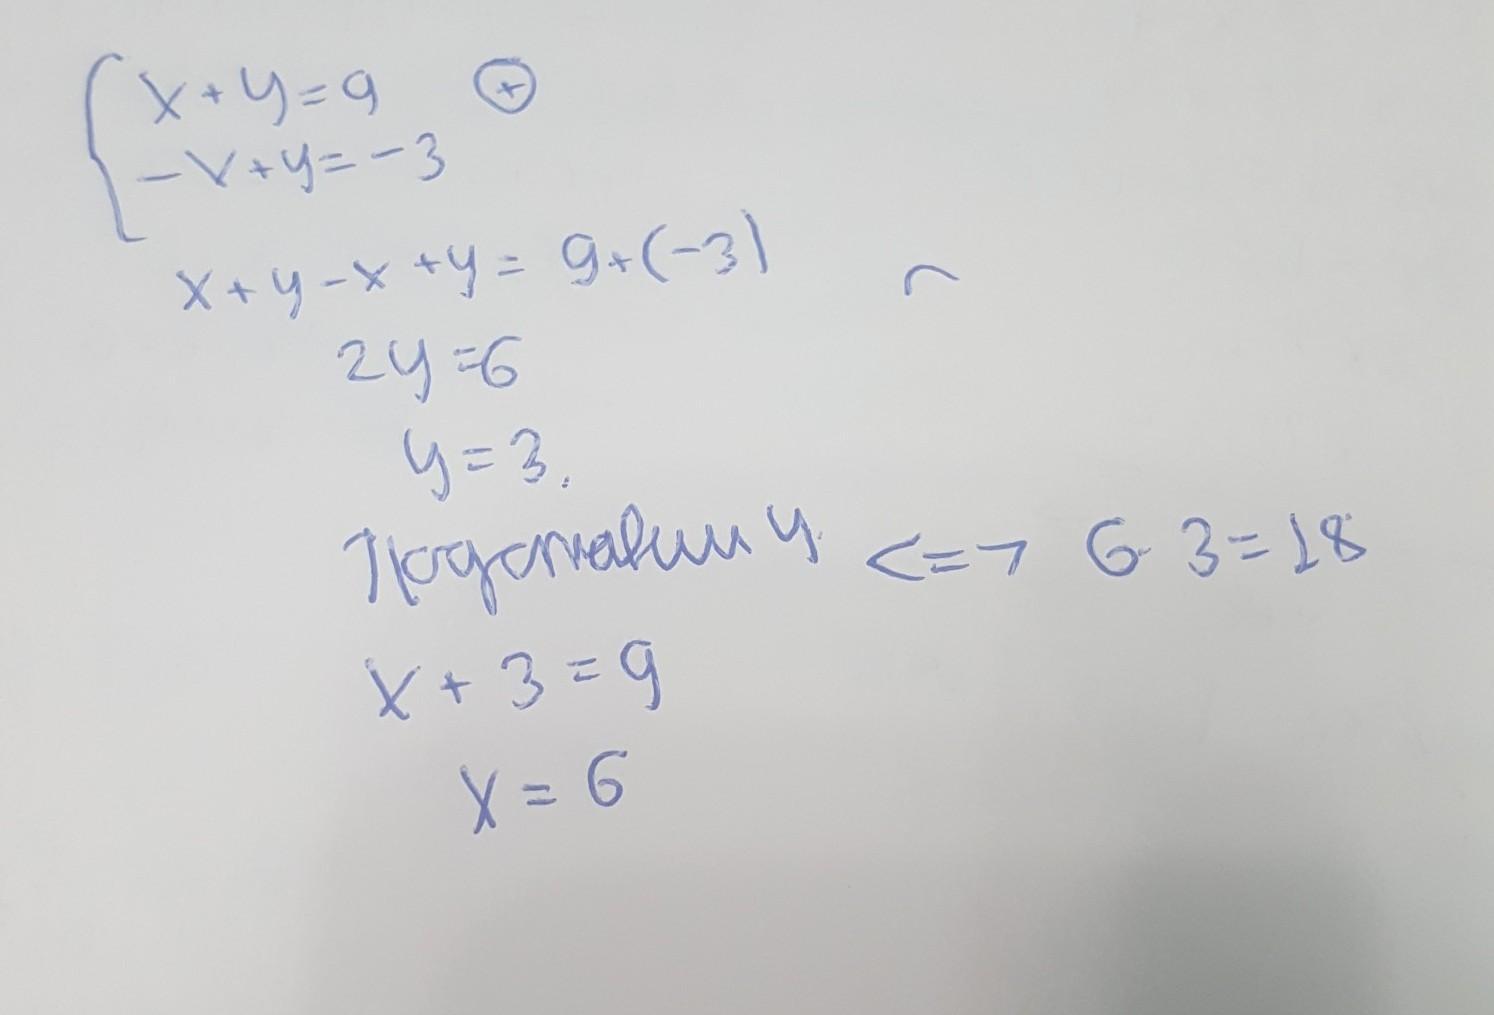 x+y=9 ⊕
-x+y=-3
x+y-x+y=9+(-3)
2y=6
y=3.
Подставим y <=> 6·3=18
x+3=9
x=6